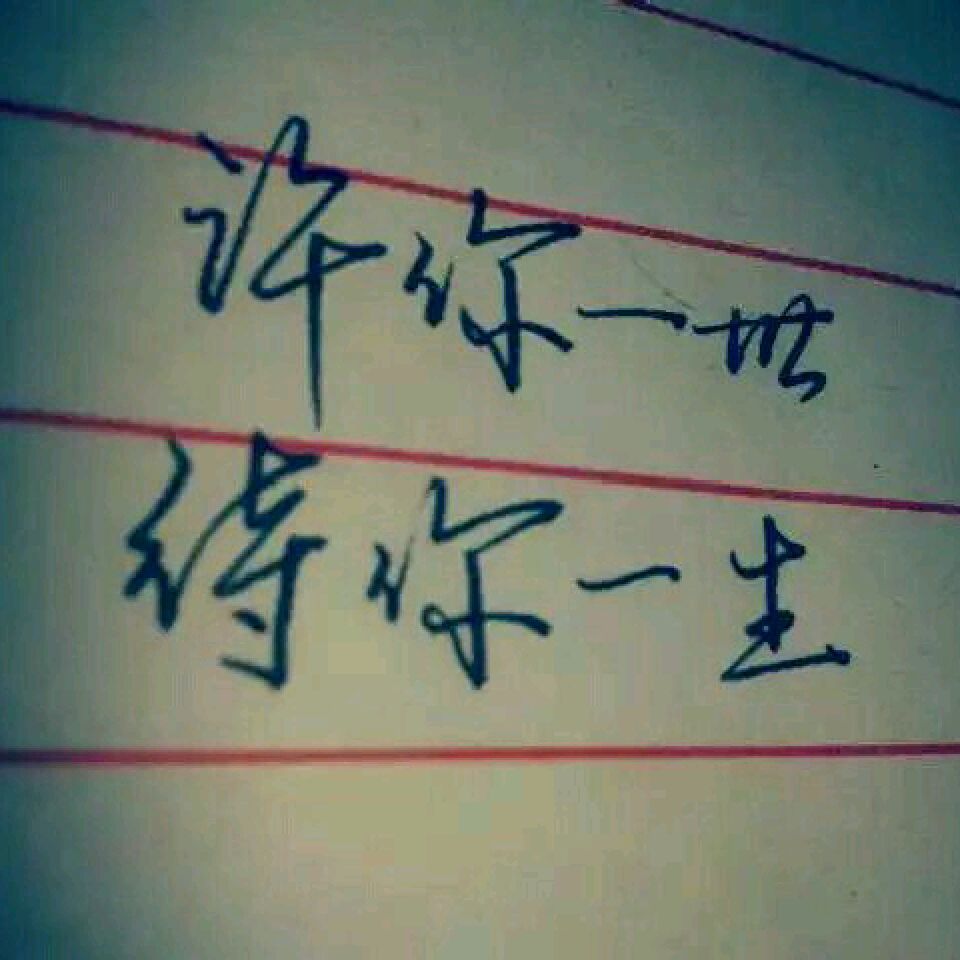 许你一世
待你一生